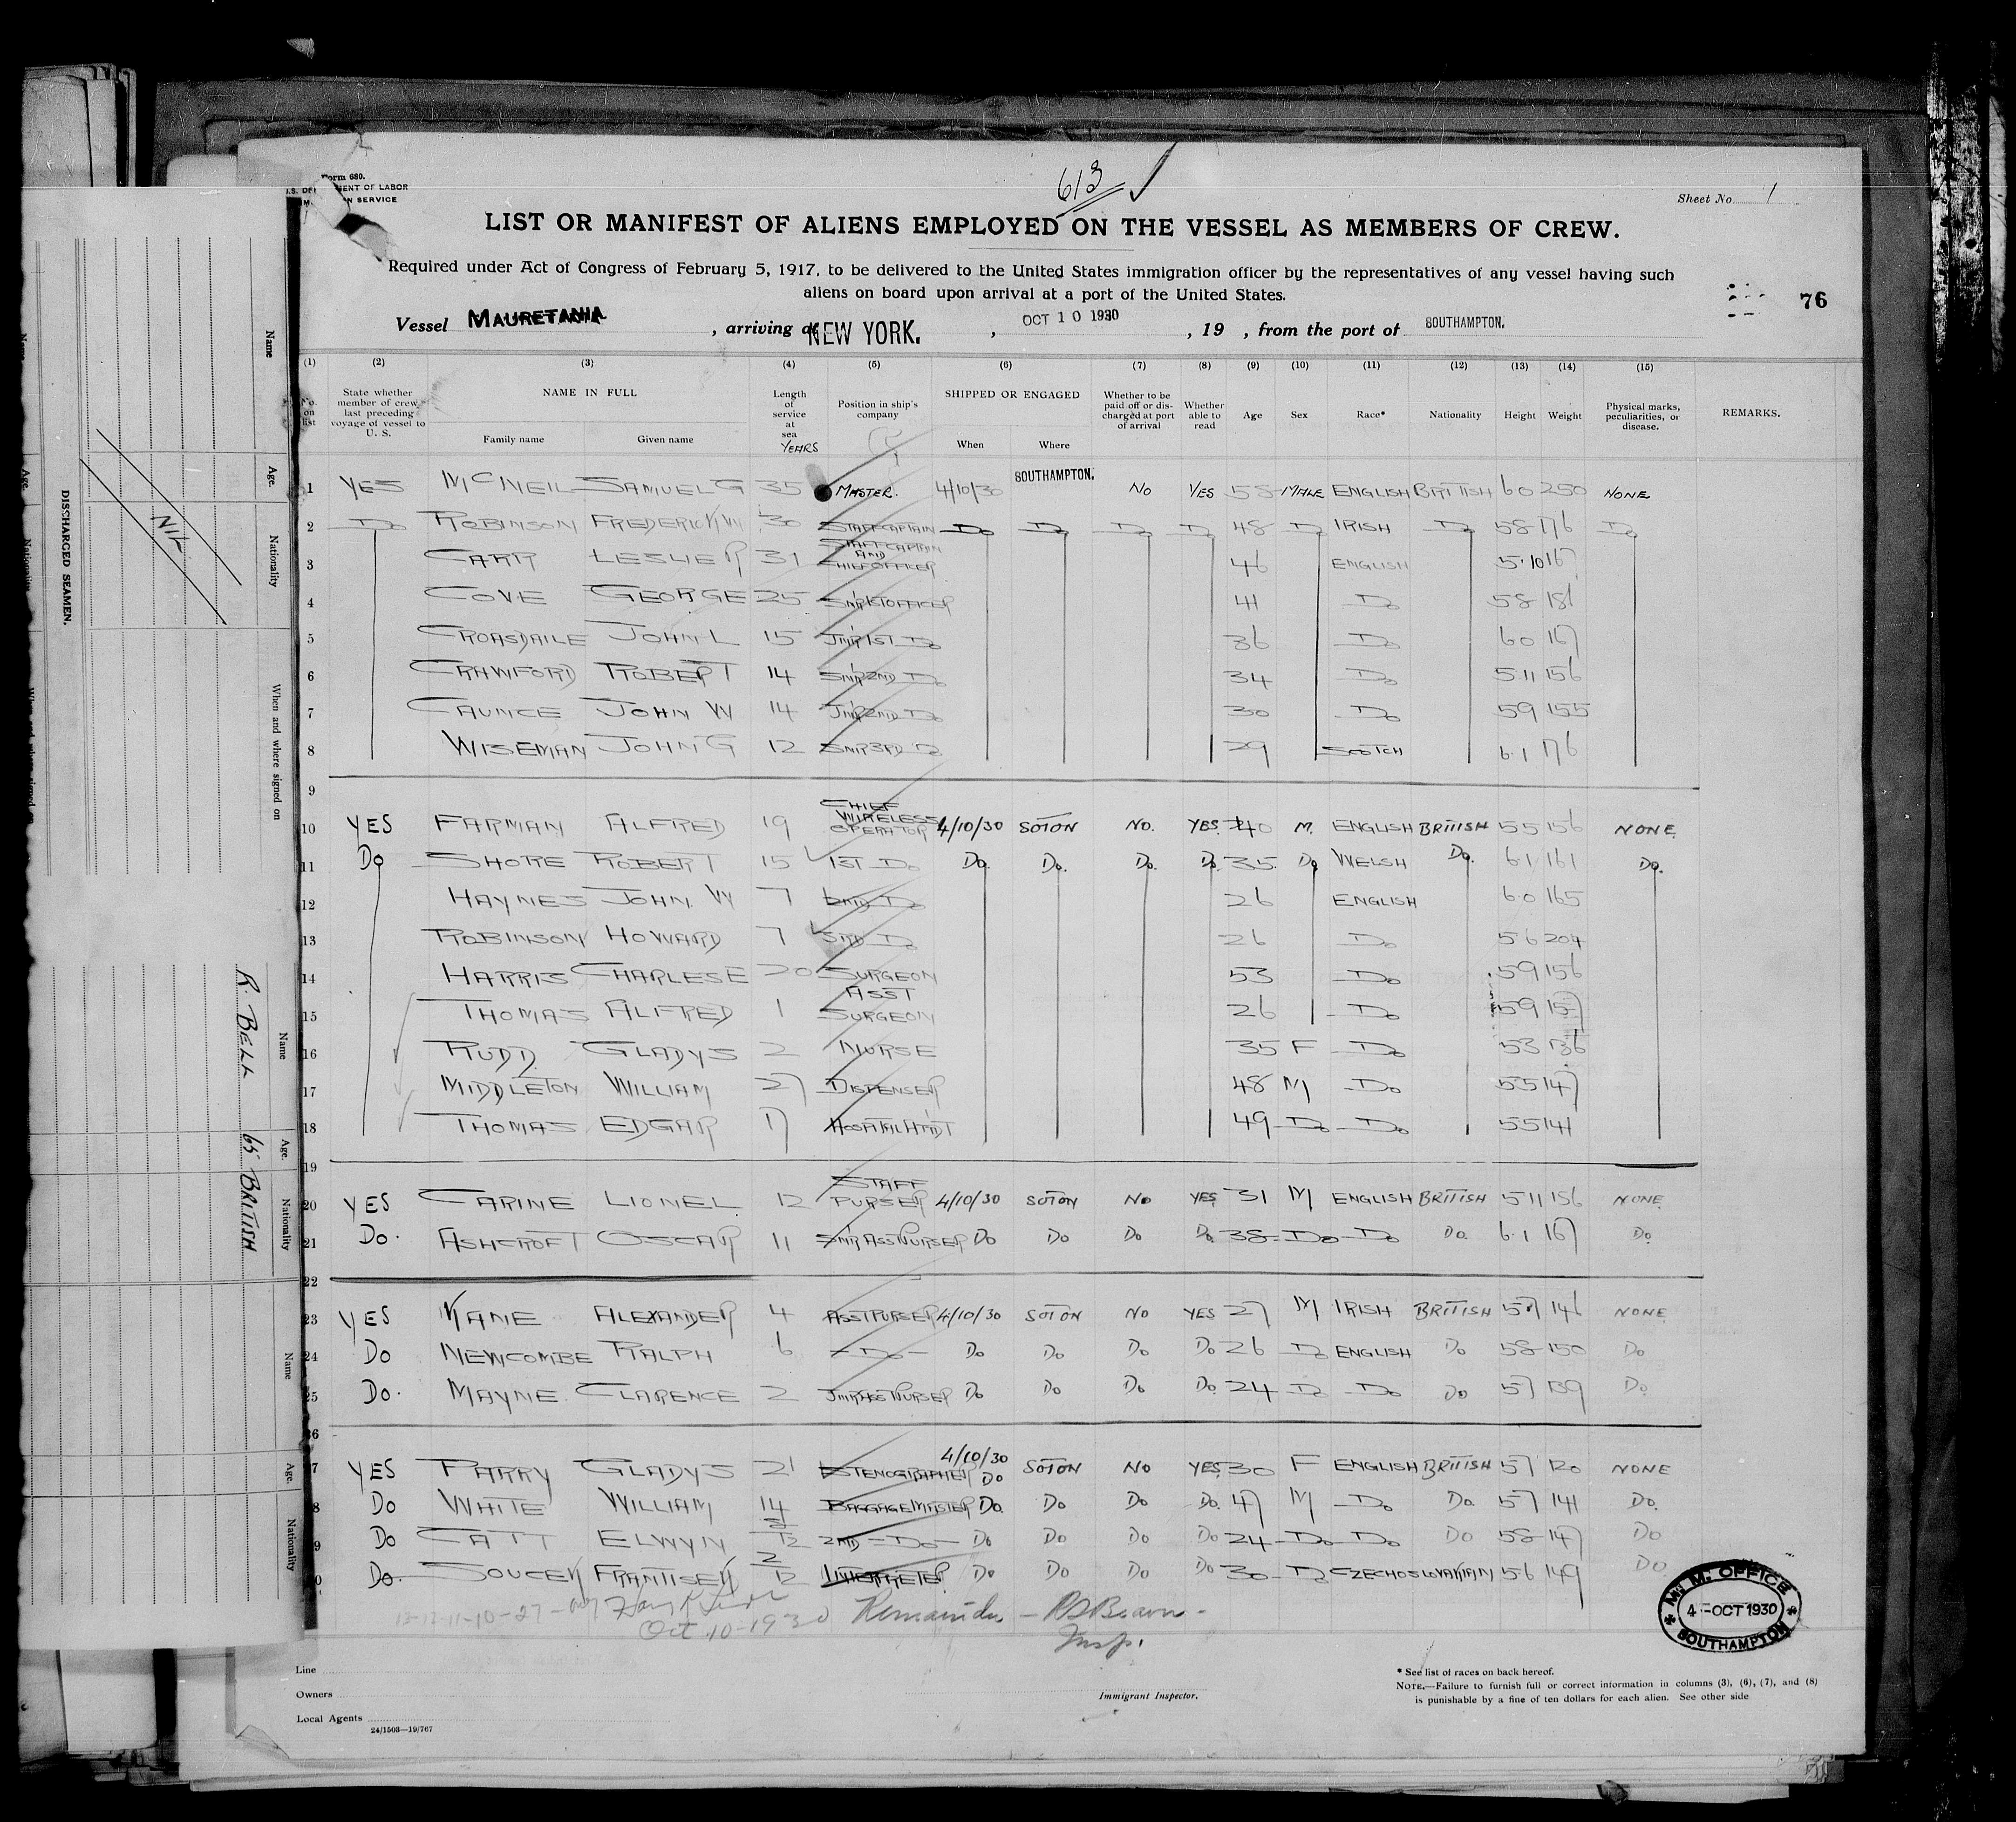 Form 680.
U.S. DEPARTMENT OF LABOR
SERVICE
613
Sheet No. 1
LIST OR MANIFEST OF ALIENS EMPLOYED ON THE VESSEL AS MEMBERS OF CREW.
Required under Act of Congress of February 5, 1917, to be delivered to the United States immigration officer by the representatives of any vessel having such
aliens on board upon arrival at a port of the United States.
76
Vessel MAURETANIA, arriving at NEW YORK., OCT 10 1930, 19 , from the port of SOUTHAMPTON.
(1) (2) (3) (4) (5) (6) (7) (8) (9) (10) (11) (12) (13) (14) (15)
No. on list
State whether member of crew last preceding voyage of vessel to U. S.
NAME IN FULL
Family name Given name
Length of service at sea YEARS
Position in ship's company
SHIPPED OR ENGAGED
When Where
Whether to be paid off or discharged at port of arrival
Whether able to read
Age Sex Race* Nationality Height Weight
Physical marks, peculiarities, or disease.
REMARKS.
1 YES McNEIL SAMUEL G 35 MASTER. 4/10/30 SOUTHAMPTON. NO YES 58 MALE ENGLISH BRITISH 60 250 NONE
2 Do ROBINSON FREDERICK W 30 STAFF CAPTAIN Do Do Do Do 48 Do IRISH Do 58 176 Do
3 CARR LESLIE R 31 STAFF CAPTAIN AND CHIEF OFFICER 46 ENGLISH 5·10 167
4 COVE GEORGE 25 SNR 1ST OFFICER 41 Do 58 186
5 CROASDAILE JOHN L 15 JNR 1ST Do 36 Do 60 167
6 CRAWFORD ROBERT 14 SNR 2ND Do 34 Do 5·11 156
7 CAUNCE JOHN W 14 JNR 2ND Do 30 Do 59 155
8 WISEMAN JOHN G 12 SNR 3RD Do 29 SCOTCH 6·1 176
9
10 YES FARMAN ALFRED 19 CHIEF WIRELESS OPERATOR 4/10/30 SOTON NO. YES 40 M. ENGLISH BRITISH 55 156 NONE
11 Do SHORE ROBERT 15 1ST Do Do. Do. Do. Do. 35 Do WELSH Do. 6·1 161 Do.
12 HAYNES JOHN. W 7 2ND Do 26 ENGLISH 6·0 165
13 ROBINSON HOWARD 7 3RD Do 26 Do 56 204
14 HARRIS CHARLES E 20 SURGEON 53 Do 59 156
15 THOMAS ALFRED 1 ASST SURGEON 26 Do 59 157
16 RUDD GLADYS 2 NURSE 35 F Do 53 136
17 MIDDLETON WILLIAM 27 DISPENSER 48 M Do 55 147
18 THOMAS EDGAR 17 HOSPITAL ATTDT 49 Do Do 55 141
19
20 YES CARINE LIONEL. 12 STAFF PURSER 4/10/30 SOTON NO YES 31 M ENGLISH BRITISH 511 156 NONE
21 Do. ASHCROFT OSCAR 11 SNR ASST PURSER Do Do Do Do 38 Do Do Do. 6·1 167 Do
22
23 YES KANE ALEXANDER 4 ASST PURSER 4/10/30 SOTON NO YES 27 M IRISH BRITISH 57 146 NONE
24 Do NEWCOMBE RALPH 6 Do Do Do Do Do 26 Do ENGLISH Do 58 150 Do
25 Do. MAYNE CLARENCE 2 JNR ASST PURSER Do Do Do Do 24 Do Do Do 57 139 Do
26
27 YES PARRY GLADYS 21 STENOGRAPHER 4/10/30 Do SOTON NO YES 30 F ENGLISH BRITISH 57 120 NONE
28 Do WHITE WILLIAM 14 BAGGAGE MASTER Do. Do Do Do. 47 M Do Do. 57 141 Do.
29 Do CATT ELWYN 2ND Do Do Do Do Do 24 Do Do Do 58 147 Do
30 Do. SOUCEK FRANTISEK 2/12 INTERPRETER Do Do Do Do 30 Do CZECHOSLOVAKIAN 56 149 Do
Oct. 10-1930
Remainder
Insp.
M. M. OFFICE
4-OCT 1930
SOUTHAMPTON
Line
Owners
Local Agents
24/1503—19/767
Immigrant Inspector.
* See list of races on back hereof.
NOTE.—Failure to furnish full or correct information in columns (3), (6), (7), and (8)
is punishable by a fine of ten dollars for each alien. See other side
DISCHARGED SEAMEN.
Name
Age.
Nationality
When and where signed on
NIL
Name
Age.
Nationality
R. BELL 65 BRITISH
Name
Age.
Nationality